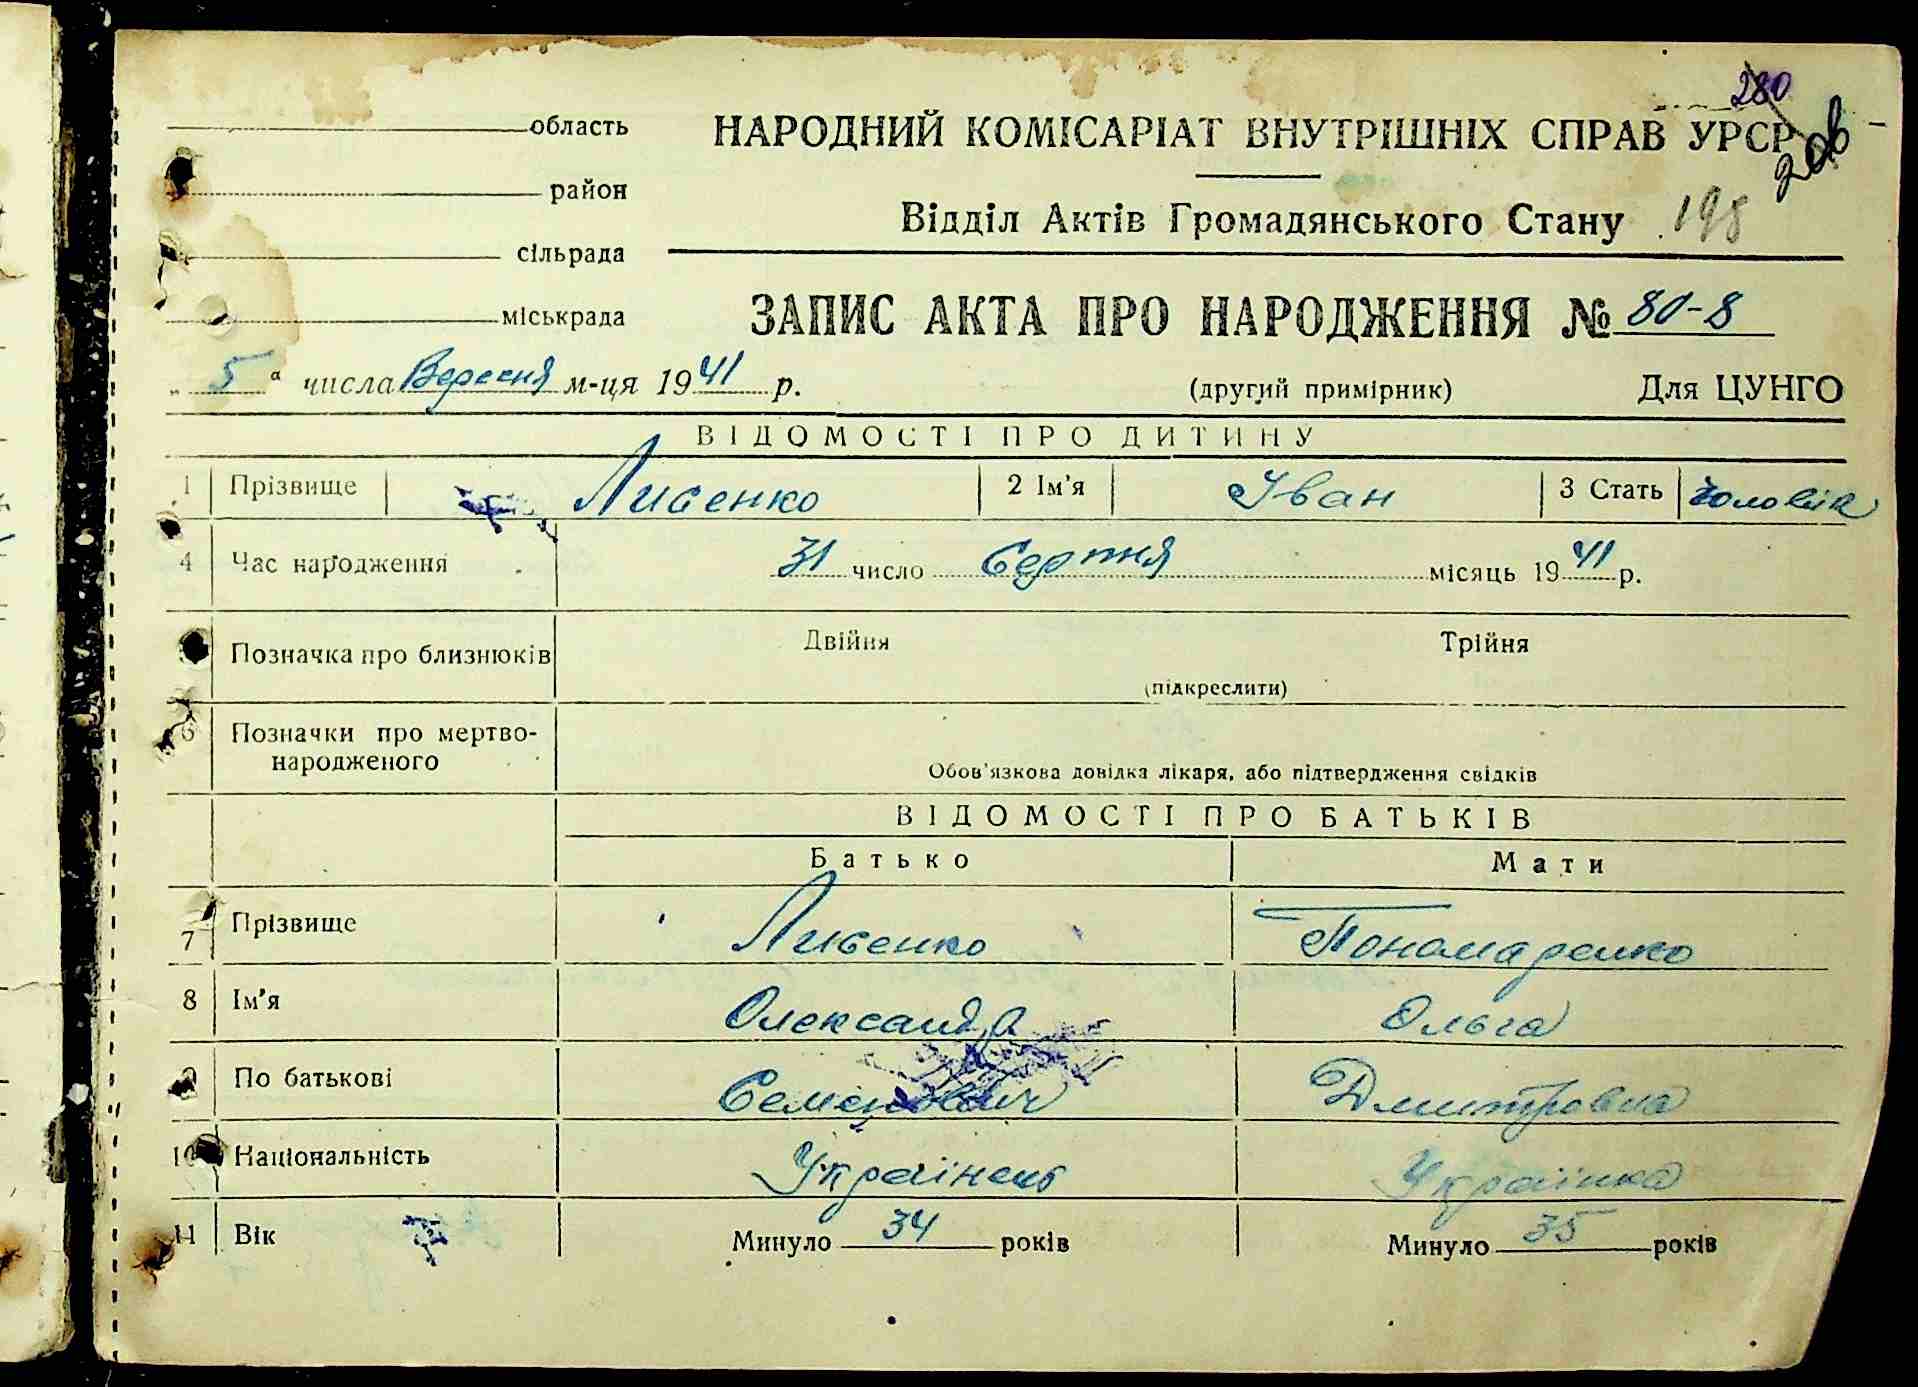 280
206
область НАРОДНИЙ КОМІСАРІАТ ВНУТРІШНІХ СПРАВ УРСР
район
Відділ Актів Громадянського Стану 198
сільрада
міськрада
ЗАПИС АКТА ПРО НАРОДЖЕННЯ № 80-8
„5“ числа Вересня м-ця 1941 р. (другий примірник) Для ЦУНГО
ВІДОМОСТІ ПРО ДИТИНУ
1 Прізвище Лисенко 2 Ім'я Іван 3 Стать Чоловік
4 Час народження 31 число Серпня місяць 1941 р.
Позначка про близнюків Двійня Трійня
(підкреслити)
6 Позначки про мертво-
народженого
Обов'язкова довідка лікаря, або підтвердження свідків
ВІДОМОСТІ ПРО БАТЬКІВ
Батько Мати
7 Прізвище Лисенко Пономаренко
8 Ім'я Олександр Ольга
9 По батькові Семенович Дмитровна
10 Національність Українець Українка
11 Вік Минуло 34 років Минуло 35 років